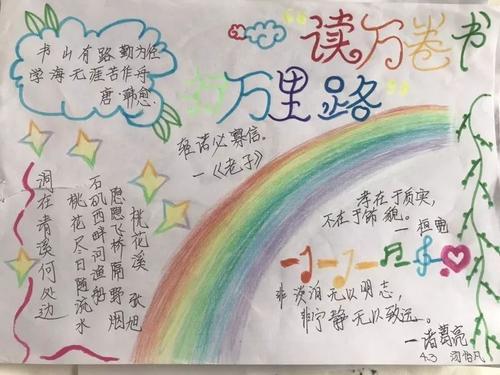 “读万卷书
行万里路”
书山有路勤为径
学海无涯苦作舟
唐·韩愈
轻诺必寡信。
—《老子》
孝在于质实,
不在于饰貌。
—桓宽
桃花溪 张旭
隐隐飞桥隔野烟
石矶西畔问渔船
桃花尽日随流水
洞在清溪何处边
非淡泊无以明志,
非宁静无以致远。
—诸葛亮
4.3